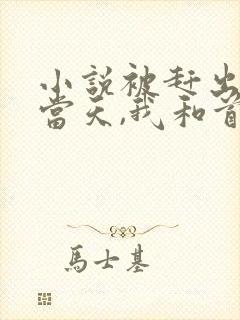 小說被赶出
當天,我和首
馬士基